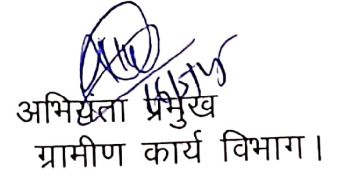 अभियंता प्रमुख
ग्रामीण कार्य विभाग।